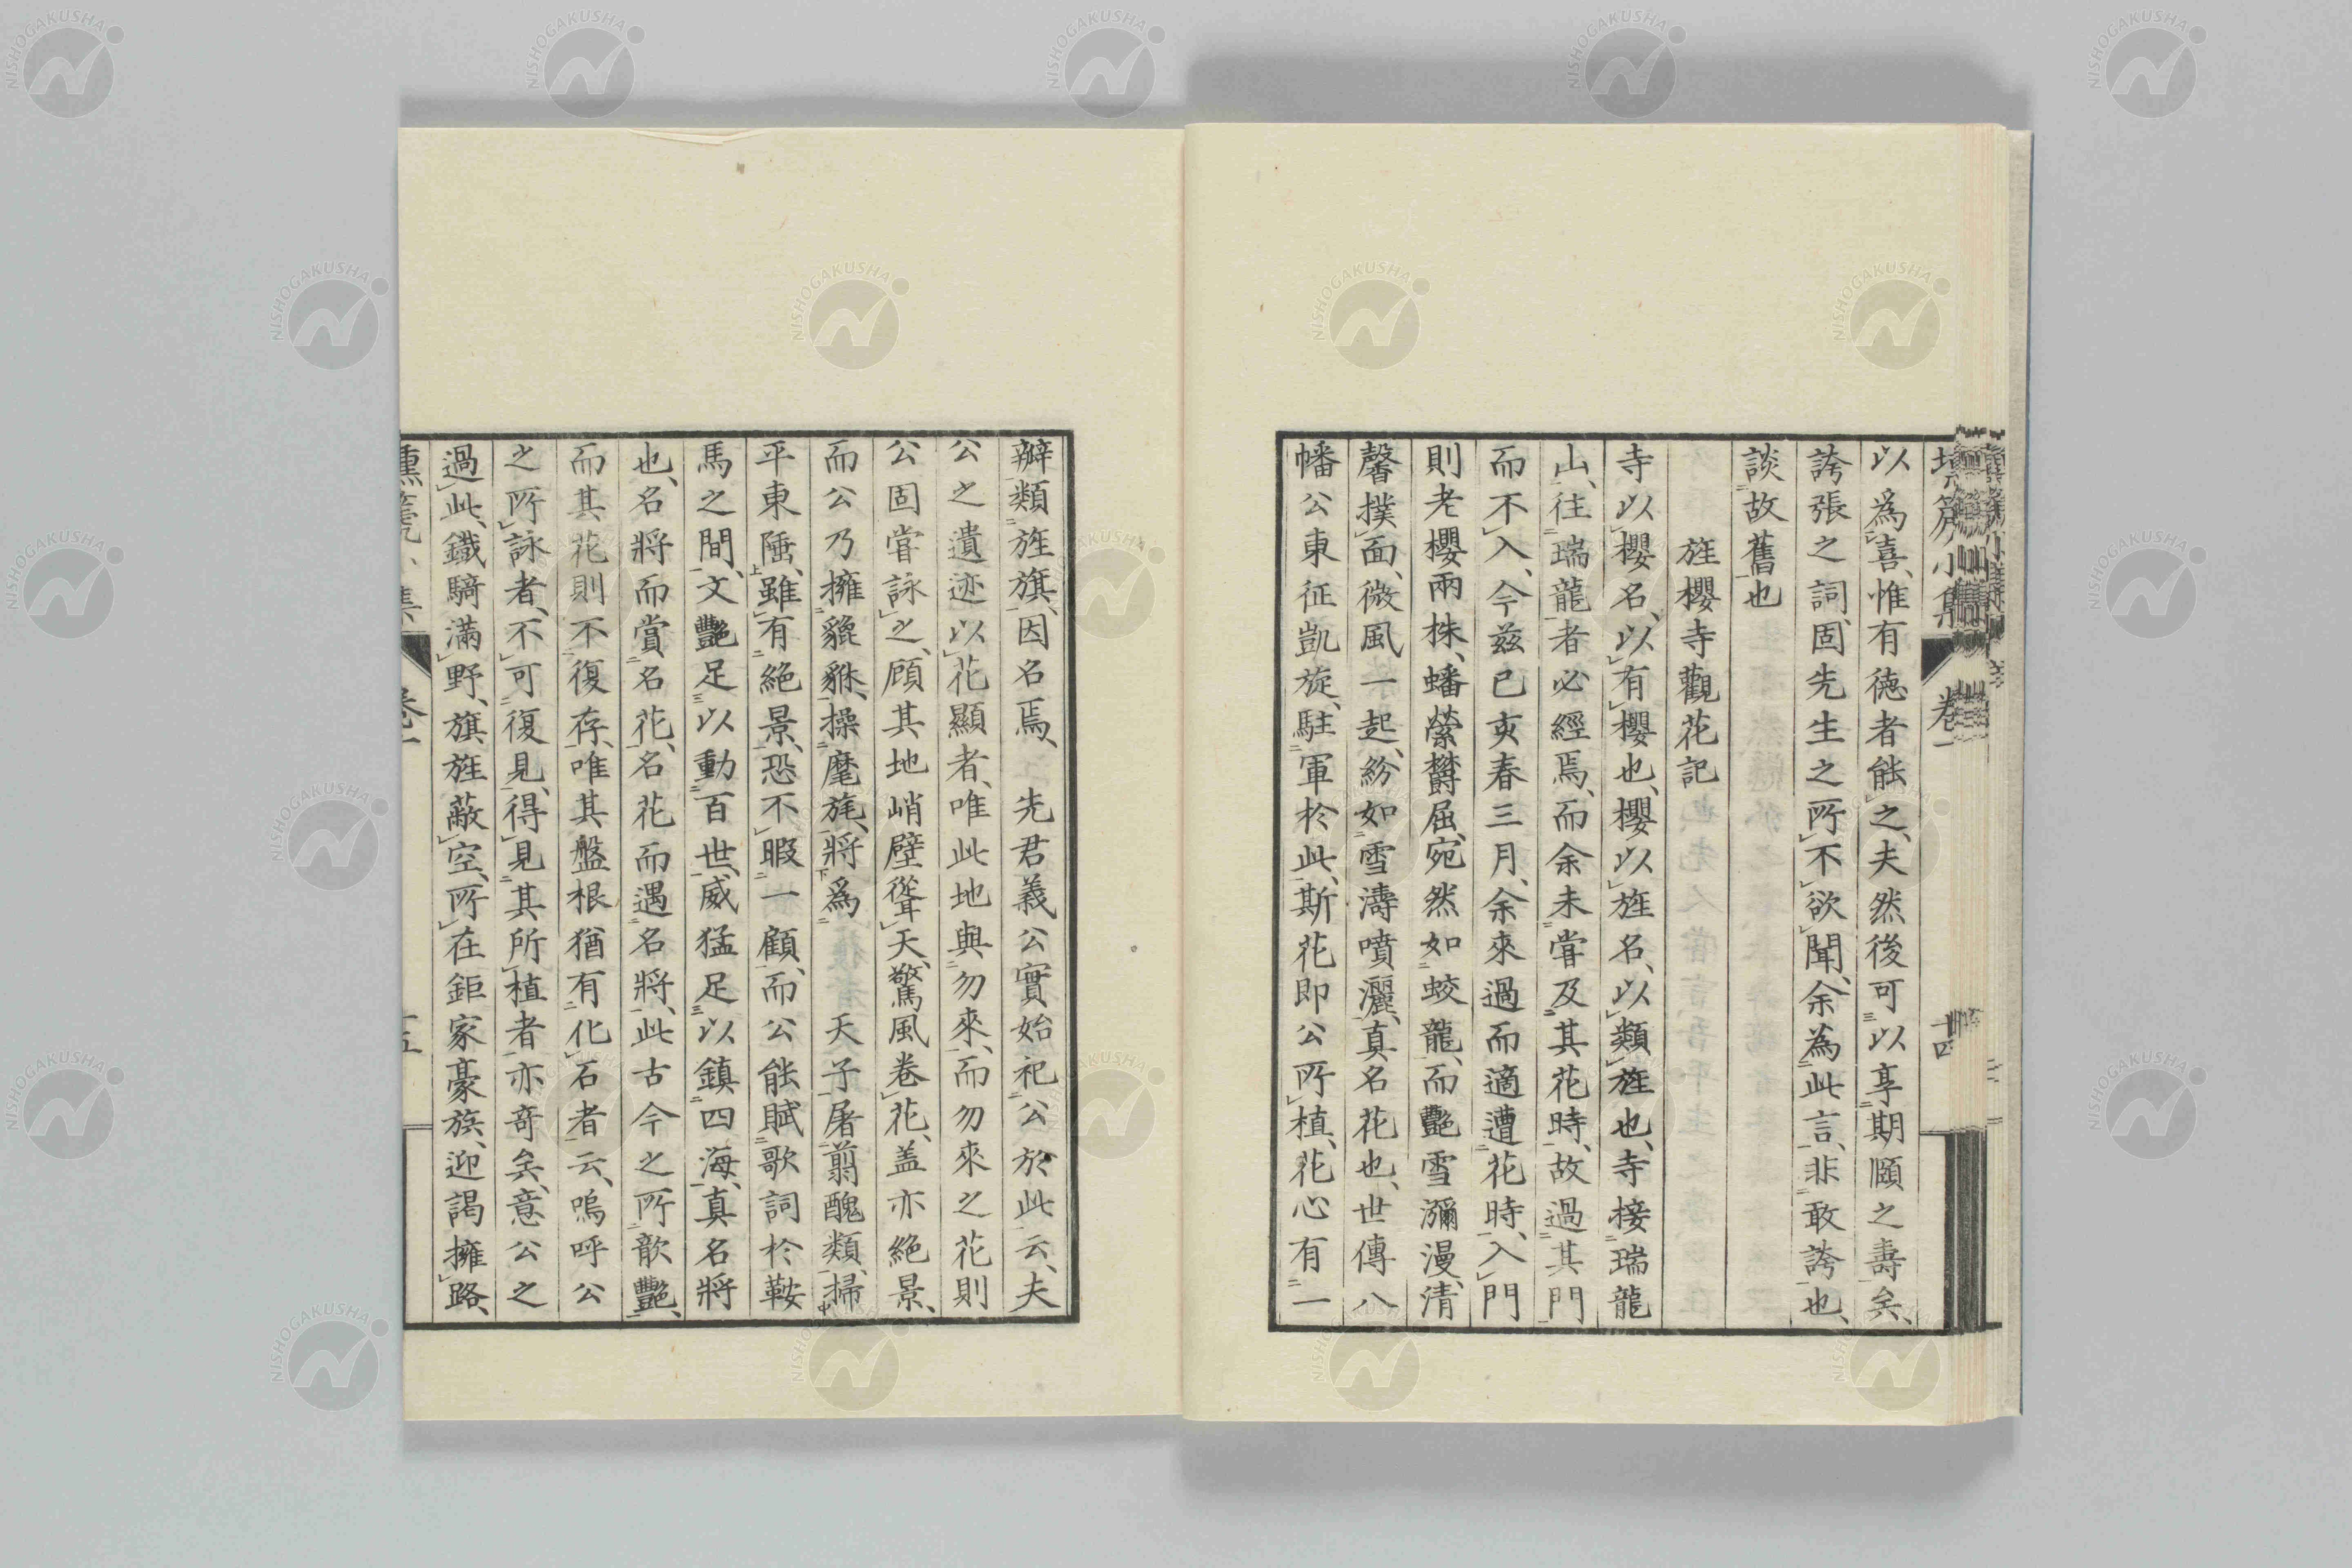 以爲喜、惟有徳者能之、夫然後可以享期頤之壽矣、
誇張之詞、固先生之所不欲聞、余為此言、非敢誇也、
談故舊也
旌櫻寺觀花記
寺以櫻名、以有櫻也、櫻以旌名、以類旌也、寺接瑞龍
山、往瑞龍者必經焉、而余未嘗及其花時、故過其門
而不入、今茲已亥春三月、余來過而適遭花時、入門
則老櫻兩株、蟠縈欝屈、宛然如蛟龍、而艷雪瀰漫、清
馨撲面、微風一起、紛如雪濤噴灑、真名花也、世傳八
幡公東征凱旋、駐軍於此、斯花即公所植、花心有一
辧類旌旗、因名焉、先君義公實始祀公於此云、夫
公之遺迹以花顯者、唯此地與勿來、而勿來之花則
公固嘗詠之、顧其地峭壁聳天、驚風卷花、盖亦絕景、
而公乃擁貔貅、操麾旄、將爲天子屠翦醜類、掃
平東陲、雖有絕景、恐不暇一顧、而公能賦歌詞於鞍
馬之間、文艷足以動百世、威猛足以鎮四海、真名將
也、名將而賞名花、名花而遇名將、此古今之所歆艷、
而其花則不復存、唯其盤根猶有化石者云、嗚呼公
之所詠者、不可復見、得見其所植者、亦竒矣、意公之
過此、鐵騎滿野、旗旌蔽空、所在鉅家豪族、迎謁擁路、